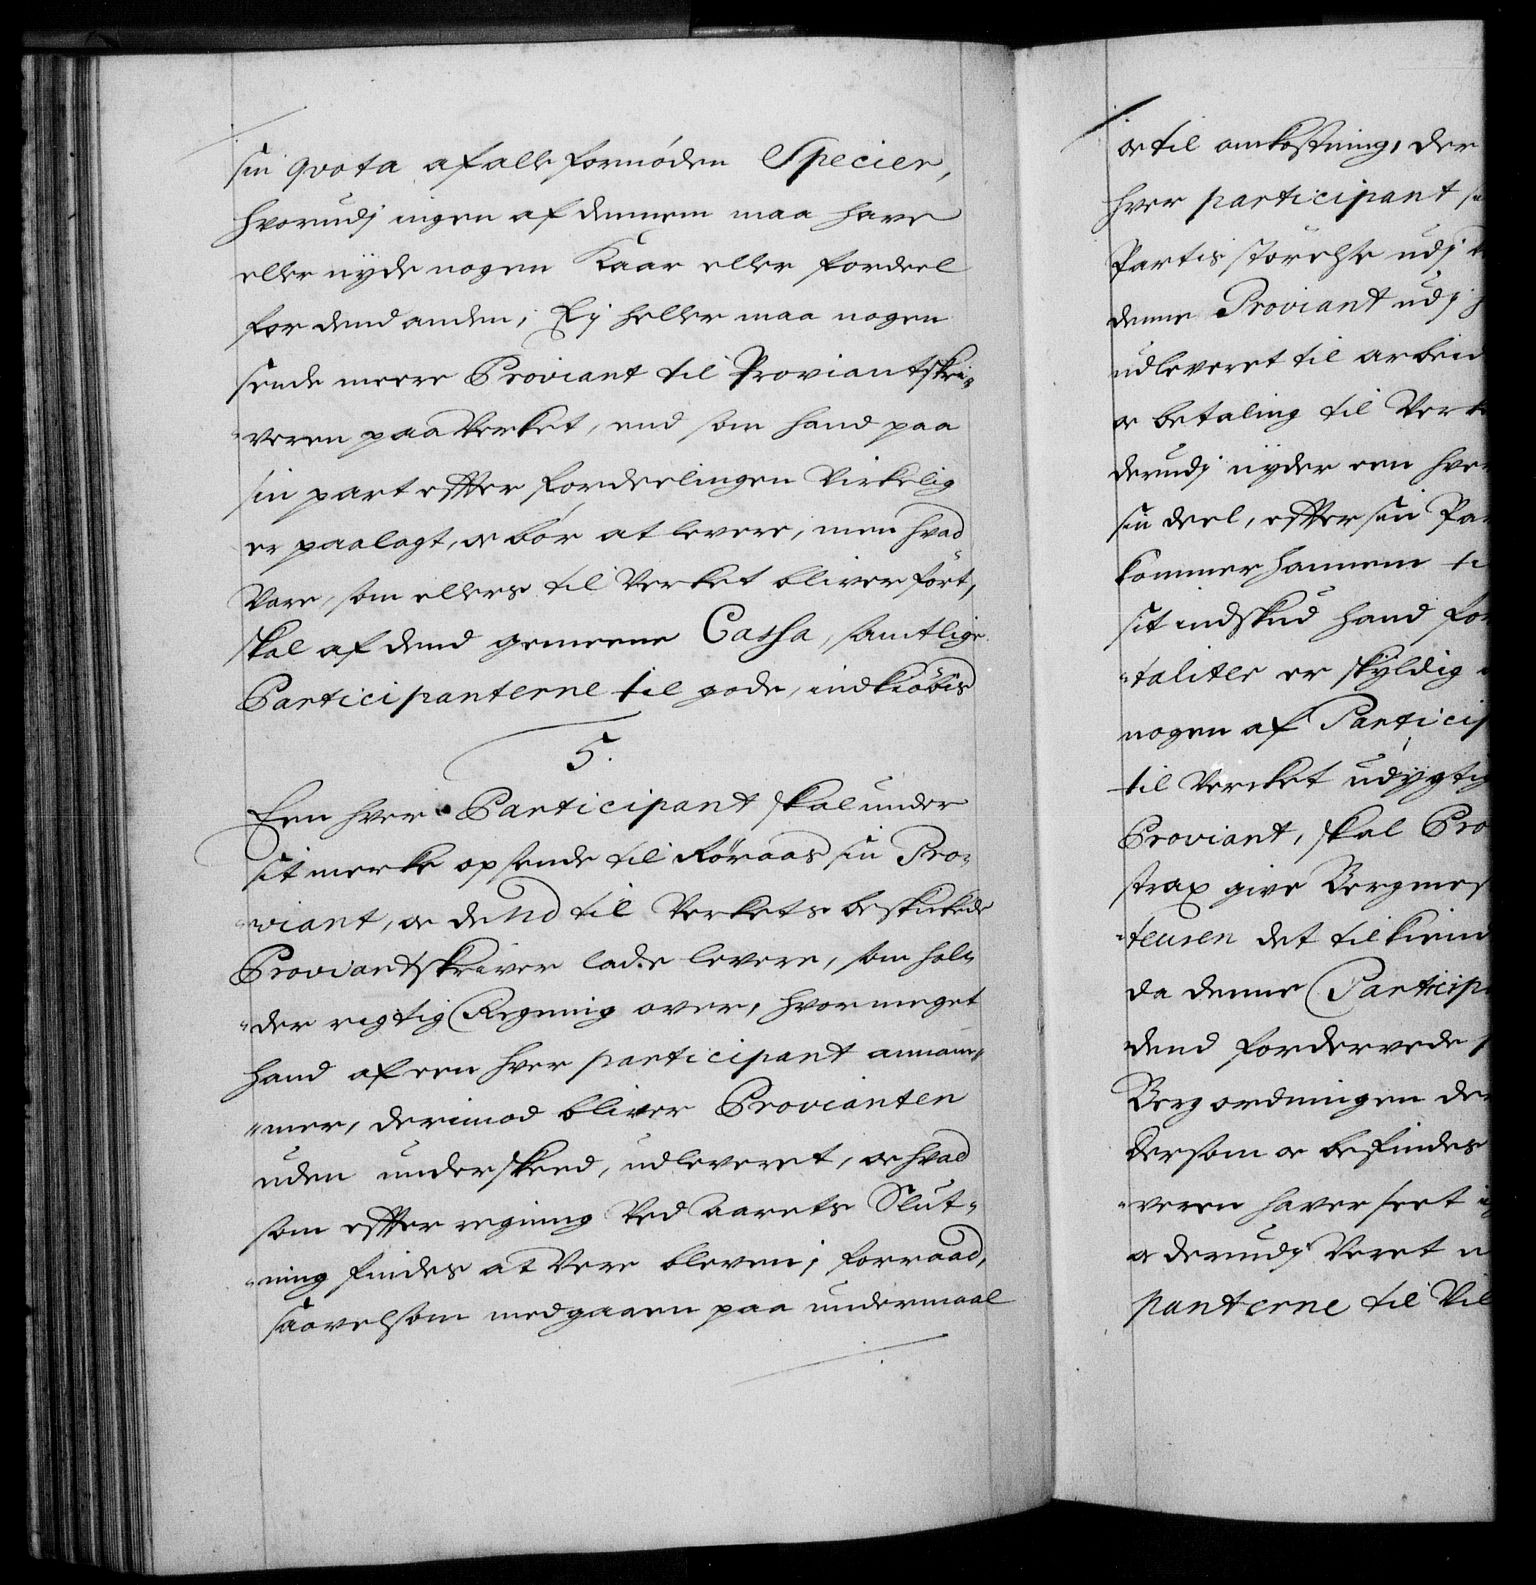 sin qvota af alle fornøden Specier,
hvorudj ingen af dennem maa have
eller nyde nogen Kaar eller fordeel
for dend anden, Ej heller maa nogen
sende meere Proviant til Proviantskri„
„veren paa Verket, end som hand paa
sin part efter fordeelingen Virkelig
er paalagt, oc bör at levere, men hvad
Vare, som ellers til Verket bliver fört,
skal af dend gemeene Cassa, samtlige
Participanterne til gode, indkiöbis
5.
Een hver Participant skal under
sit merke opsende til Röraas sin Pro„
„viant, oc dend til Verkets beskikede
Proviantskriver lade levere, som hol„
„der rigtig Regning over, hvor meget
hand af een hver participant annam„
„mer, derimod bliver Provianten
uden underskeed, udleveret, oc hvad
som efter regning Ved Aarets Slut„
„ning findes at Vere bleven i forraad,
saavelsom medgaaen paa undermaal
oc til omkostning, der
hver participant
Partis störelse udj
denne Proviant udj
udleveret til arbeid
oc betaling til Verk
derudj nyder een hver
sin deel, efter sin Par
kommer hannem ti
sit indskud hand for
„taliter er skyldig
nogen af Particip
til Vercket udygtig
Proviant, skal Pro
strax give Bergmes
„teuren det tilkiend
da denne Particip
dend fordervede
Bergordningen der
Dersom oc befindes
„veren haver seet
oc derudj Veret
panterne til Vil